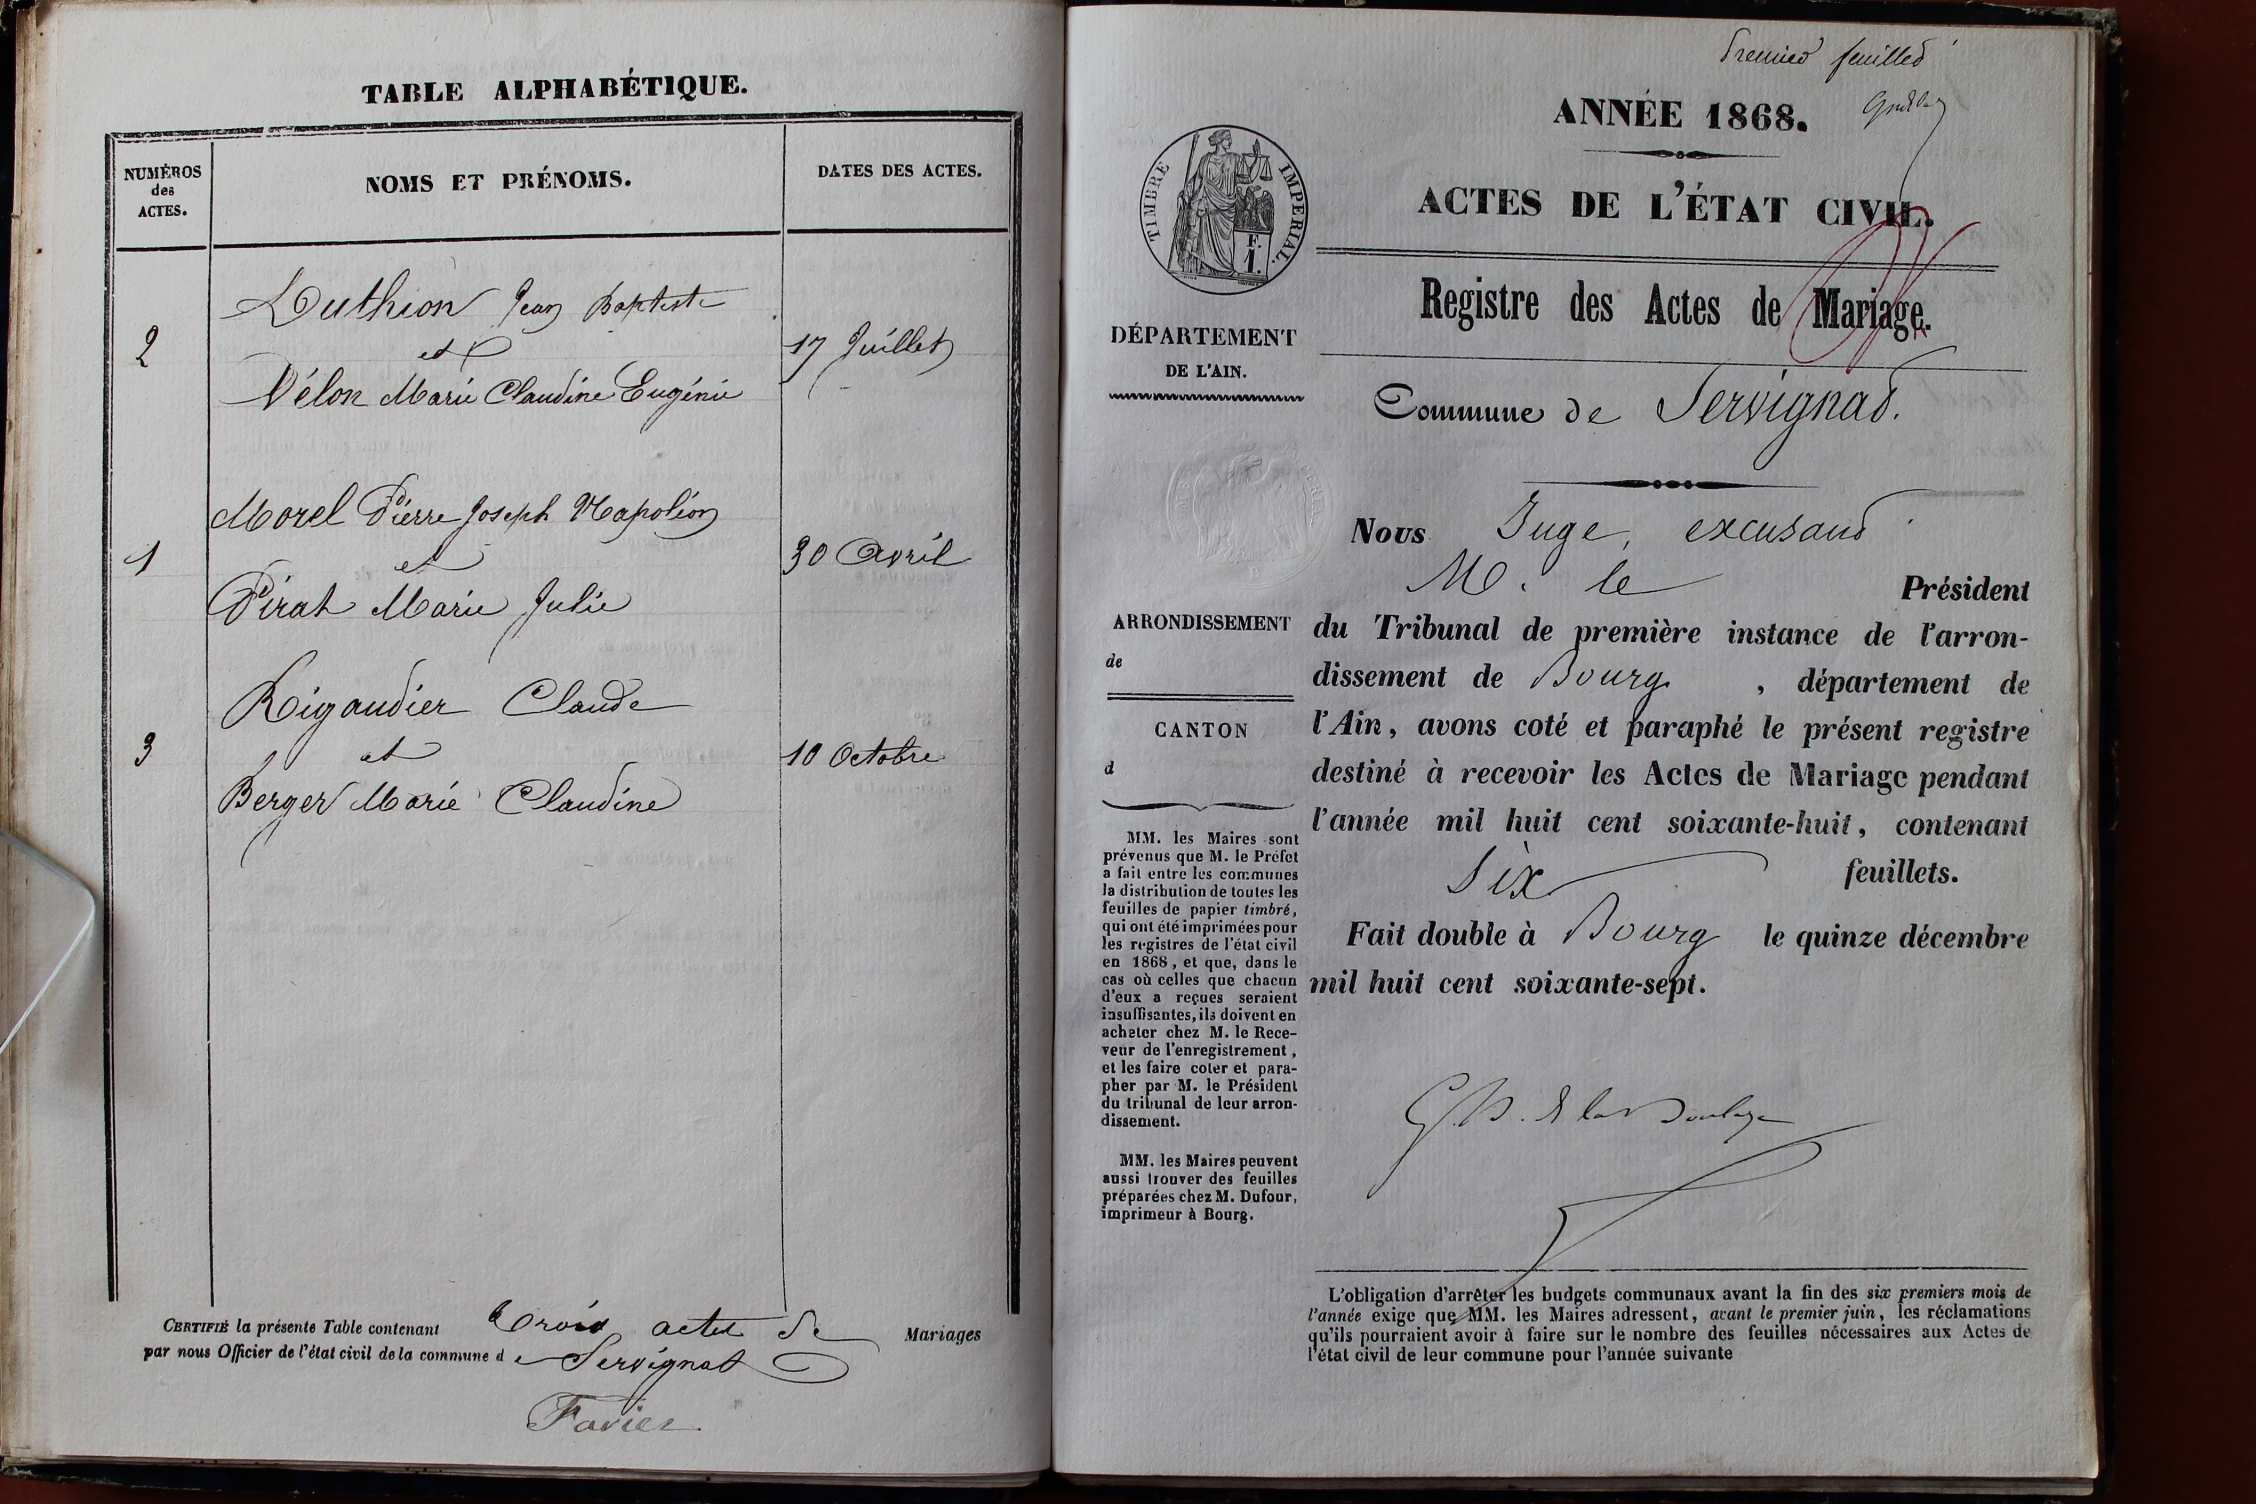 TABLE ALPHABÉTIQUE.
NUMÉROS
des
ACTES.
NOMS ET PRÉNOMS.
DATES DES ACTES.
Luthion Jean Baptiste
2
et
17 Juillet
Vélon Marie Claudine Eugénie
Morel Pierre Joseph Napoléon
1
et
30 Avril
Pirat Marie Julie
Rigaudier Claude
3
et
10 Octobre
Berger Marie Claudine
CERTIFIÉ la présente Table contenant Trois actes de Mariages
par nous Officier de l'état civil de la commune de Servignat
Favier
Premier feuillet
ANNÉE 1868.
ACTES DE L'ÉTAT CIVIL.
TIMBRE IMPERIAL.
F.
1.
Registre des Actes de Mariage.
DÉPARTEMENT
DE L'AIN.
Commune de Servignat.
Nous Juge, excusant
M. le Président
ARRONDISSEMENT
de
CANTON
d
du Tribunal de première instance de l'arron-
dissement de Bourg, département de
l'Ain, avons coté et paraphé le présent registre
destiné à recevoir les Actes de Mariage pendant
l'année mil huit cent soixante-huit, contenant
Six feuillets.
Fait double à Bourg le quinze décembre
mil huit cent soixante-sept.
MM. les Maires sont
prévenus que M. le Préfet
a fait entre les communes
la distribution de toutes les
feuilles de papier timbré,
qui ont été imprimées pour
les registres de l'état civil
en 1868, et que, dans le
cas où celles que chacun
d'eux a reçues seraient
insuffisantes, ils doivent en
acheter chez M. le Rece-
veur de l'enregistrement,
et les faire coter et para-
pher par M. le Président
du tribunal de leur arron-
dissement.
MM. les Maires peuvent
aussi trouver des feuilles
préparées chez M. Dufour,
imprimeur à Bourg.
L'obligation d'arrêter les budgets communaux avant la fin des six premiers mois de
l'année exige que MM. les Maires adressent, avant le premier juin, les réclamations
qu'ils pourraient avoir à faire sur le nombre des feuilles nécessaires aux Actes de
l'état civil de leur commune pour l'année suivante